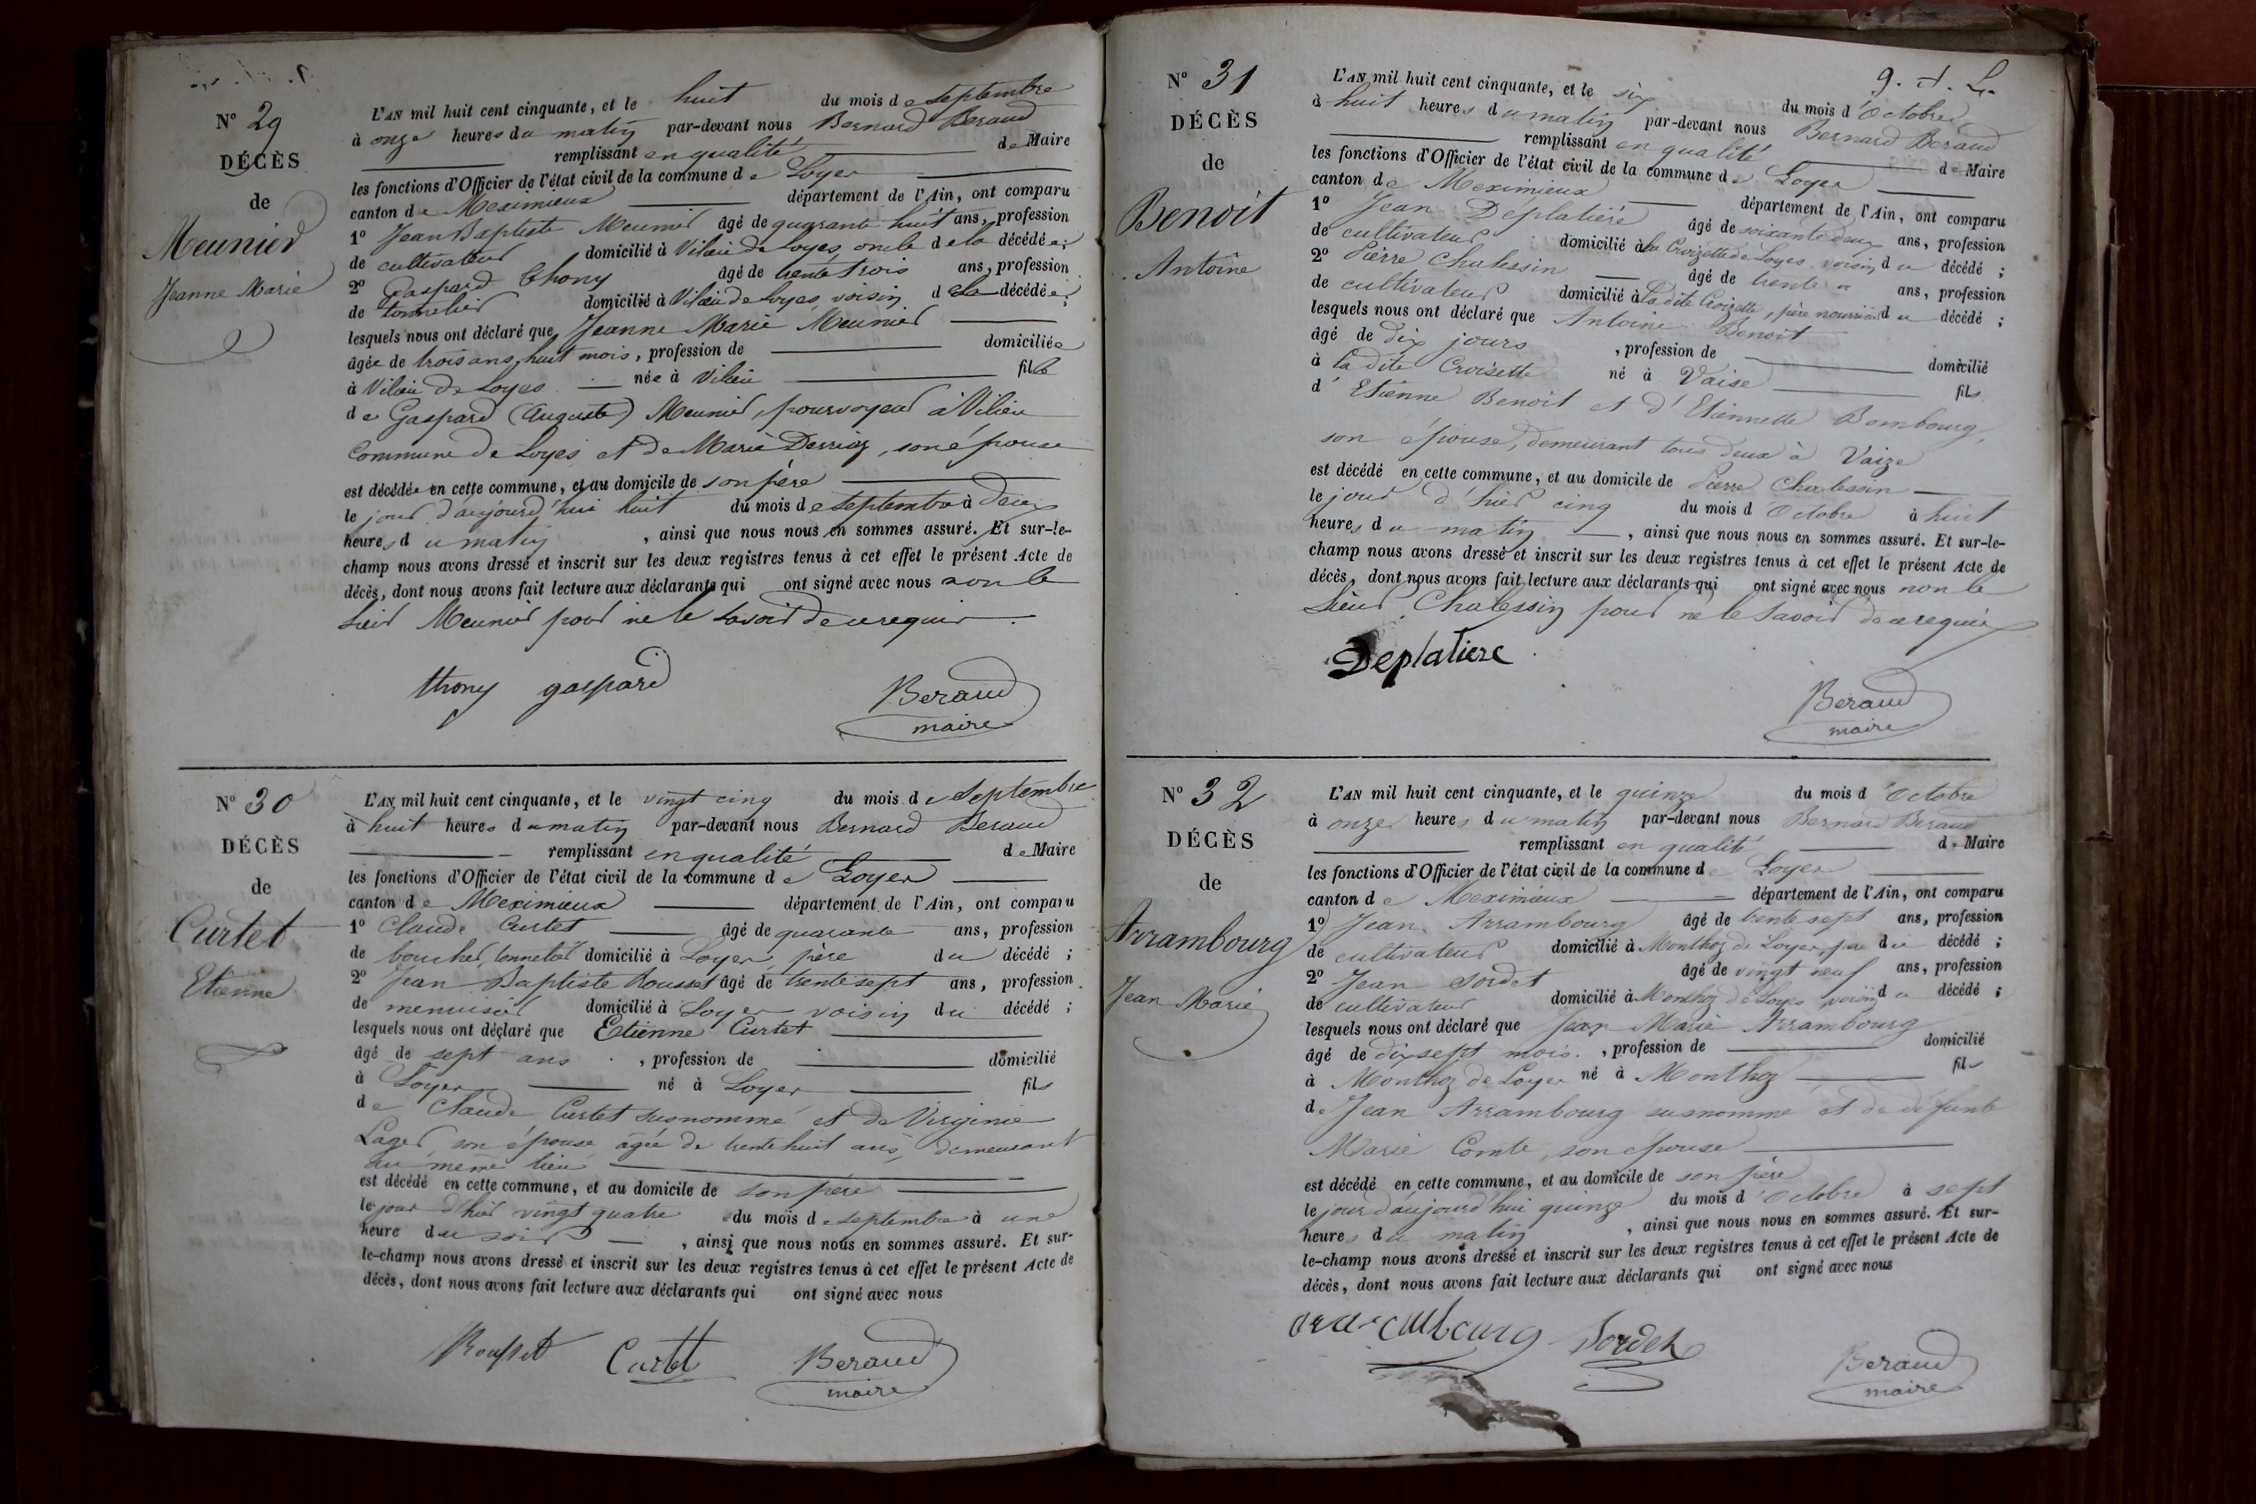 N° 29
DÉCÈS
de
Meunier
Jeanne Marie
L'AN mil huit cent cinquante, et le huit du mois de Septembre
à onze heures du matin par-devant nous Bernard Beraud
remplissant en qualité de Maire
les fonctions d'Officier de l'état civil de la commune de Loyes
canton de Meximieux département de l'Ain, ont comparu
1° Jean Baptiste Meunier âgé de quarante huit ans, profession
de cultivateur domicilié à Vilieu de Loyes, oncle de la décédée;
2° Gaspard Thony âgé de trente trois ans, profession
de tonnelier domicilié à Vilieu de Loyes, voisin de la décédée;
lesquels nous ont déclaré que Jeanne Marie Meunier
âgée de trois ans, huit mois, profession de domiciliée
à Vilieu de Loyes née à Vilieu fille
de Gaspard (Auguste) Meunier, pourvoyeur à Vilieu
Commune de Loyes et de Marie Derriaz, son épouse
est décédée en cette commune, et au domicile de son père
le jour d'aujourd'hui huit du mois de Septembre à deux
heures du matin, ainsi que nous nous en sommes assuré. Et sur-le-
champ nous avons dressé et inscrit sur les deux registres tenus à cet effet le présent Acte de
décès, dont nous avons fait lecture aux déclarants qui ont signé avec nous non le
sieur Meunier pour ne le savoir de ce requis.
thony gaspard
Beraud
maire
N° 30
DÉCÈS
de
Curtet
Etienne
L'AN mil huit cent cinquante, et le vingt cinq du mois de Septembre
à huit heures du matin par-devant nous Bernard Beraud
remplissant en qualité de Maire
les fonctions d'Officier de l'état civil de la commune de Loyes
canton de Meximieux département de l'Ain, ont comparu
1° Claude Curtet âgé de quarante ans, profession
de boucher, tonnelier domicilié à Loyes, père du décédé;
2° Jean Baptiste Rousset âgé de trente sept ans, profession
de menuisier domicilié à Loyes voisin du décédé;
lesquels nous ont déclaré que Etienne Curtet
âgé de sept ans, profession de domicilié
à Loyes né à Loyes fils
de Claude Curtet susnommé et de Virginie
Lager son épouse âgée de trente huit ans, demeurant
au même lieu
est décédé en cette commune, et au domicile de son père
le jour d'hier vingt quatre du mois de Septembre à une
heure du soir, ainsi que nous nous en sommes assuré. Et sur-
le-champ nous avons dressé et inscrit sur les deux registres tenus à cet effet le présent Acte de
décès, dont nous avons fait lecture aux déclarants qui ont signé avec nous
Rousset Curtet Beraud
maire
9. d. L.
N° 31
DÉCÈS
de
Benoit
Antoine
L'AN mil huit cent cinquante, et le six du mois d'Octobre
à huit heures du matin par-devant nous Bernard Beraud
remplissant en qualité de Maire
les fonctions d'Officier de l'état civil de la commune de Loyes
canton de Meximieux département de l'Ain, ont comparu
1° Jean Déplatière âgé de soixante deux ans, profession
de cultivateur domicilié à la Croizette de Loyes voisin du décédé;
2° Pierre Chalessin âgé de trente ans, profession
de cultivateur domicilié à la dite Croizette, père nourricier du décédé;
lesquels nous ont déclaré que Antoine Benoit
âgé de dix jours, profession de domicilié
à la dite Croisette né à Vaise fils
d'Etienne Benoit et d'Etiennette Bombourg,
son épouse, demeurant tous deux à Vaize
est décédé en cette commune, et au domicile de Pierre Chalessin
le jour d'hier cinq du mois d'Octobre à huit
heures du matin, ainsi que nous nous en sommes assuré. Et sur-le-
champ nous avons dressé et inscrit sur les deux registres tenus à cet effet le présent Acte de
décès, dont nous avons fait lecture aux déclarants qui ont signé avec nous non le
Sieur Chalessin pour ne le savoir de ce requis
Deplatiere
Beraud
maire
N° 32
DÉCÈS
de
Arrambourg
Jean Marie
L'AN mil huit cent cinquante, et le quinze du mois d'Octobre
à onze heures du matin par-devant nous Bernard Beraud
remplissant en qualité de Maire
les fonctions d'Officier de l'état civil de la commune de Loyes
canton de Meximieux département de l'Ain, ont comparu
1° Jean Arrambourg âgé de trente sept ans, profession
de cultivateur domicilié à Monthoz de Loyes, père du décédé;
2° Jean Sordet âgé de vingt neuf ans, profession
de cultivateur domicilié à Monthoz de Loyes voisin du décédé;
lesquels nous ont déclaré que Jean Marie Arrambourg
âgé de dix sept mois, profession de domicilié
à Monthoz de Loyes né à Monthoz fils
de Jean Arrambourg susnommé et de défunte
Marie Comte, son épouse
est décédé en cette commune, et au domicile de son père
le jour d'aujourd'hui quinze du mois d'Octobre à sept
heures du matin, ainsi que nous nous en sommes assuré. Et sur-
le-champ nous avons dressé et inscrit sur les deux registres tenus à cet effet le présent Acte de
décès, dont nous avons fait lecture aux déclarants qui ont signé avec nous
Sordet
Beraud
maire